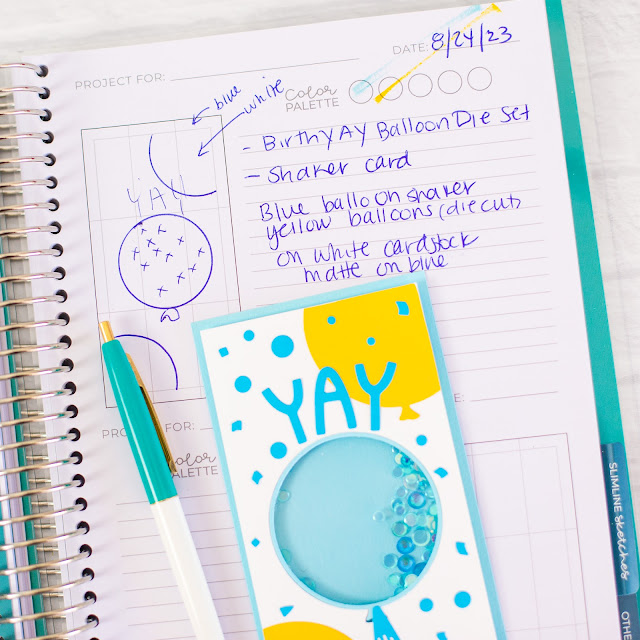 PROJECT FOR:
DATE: 8/24/23
COLOR PALETTE
blue
white
- BirthYAY Balloon Die Set
- Shaker card
Blue balloon shaker
yellow balloons (die cut)
on white cardstock
matte on blue
YAY
YAY
PROJECT FOR:
COLOR PALETTE
E:
SLIMLINE SKETCHES
OTH